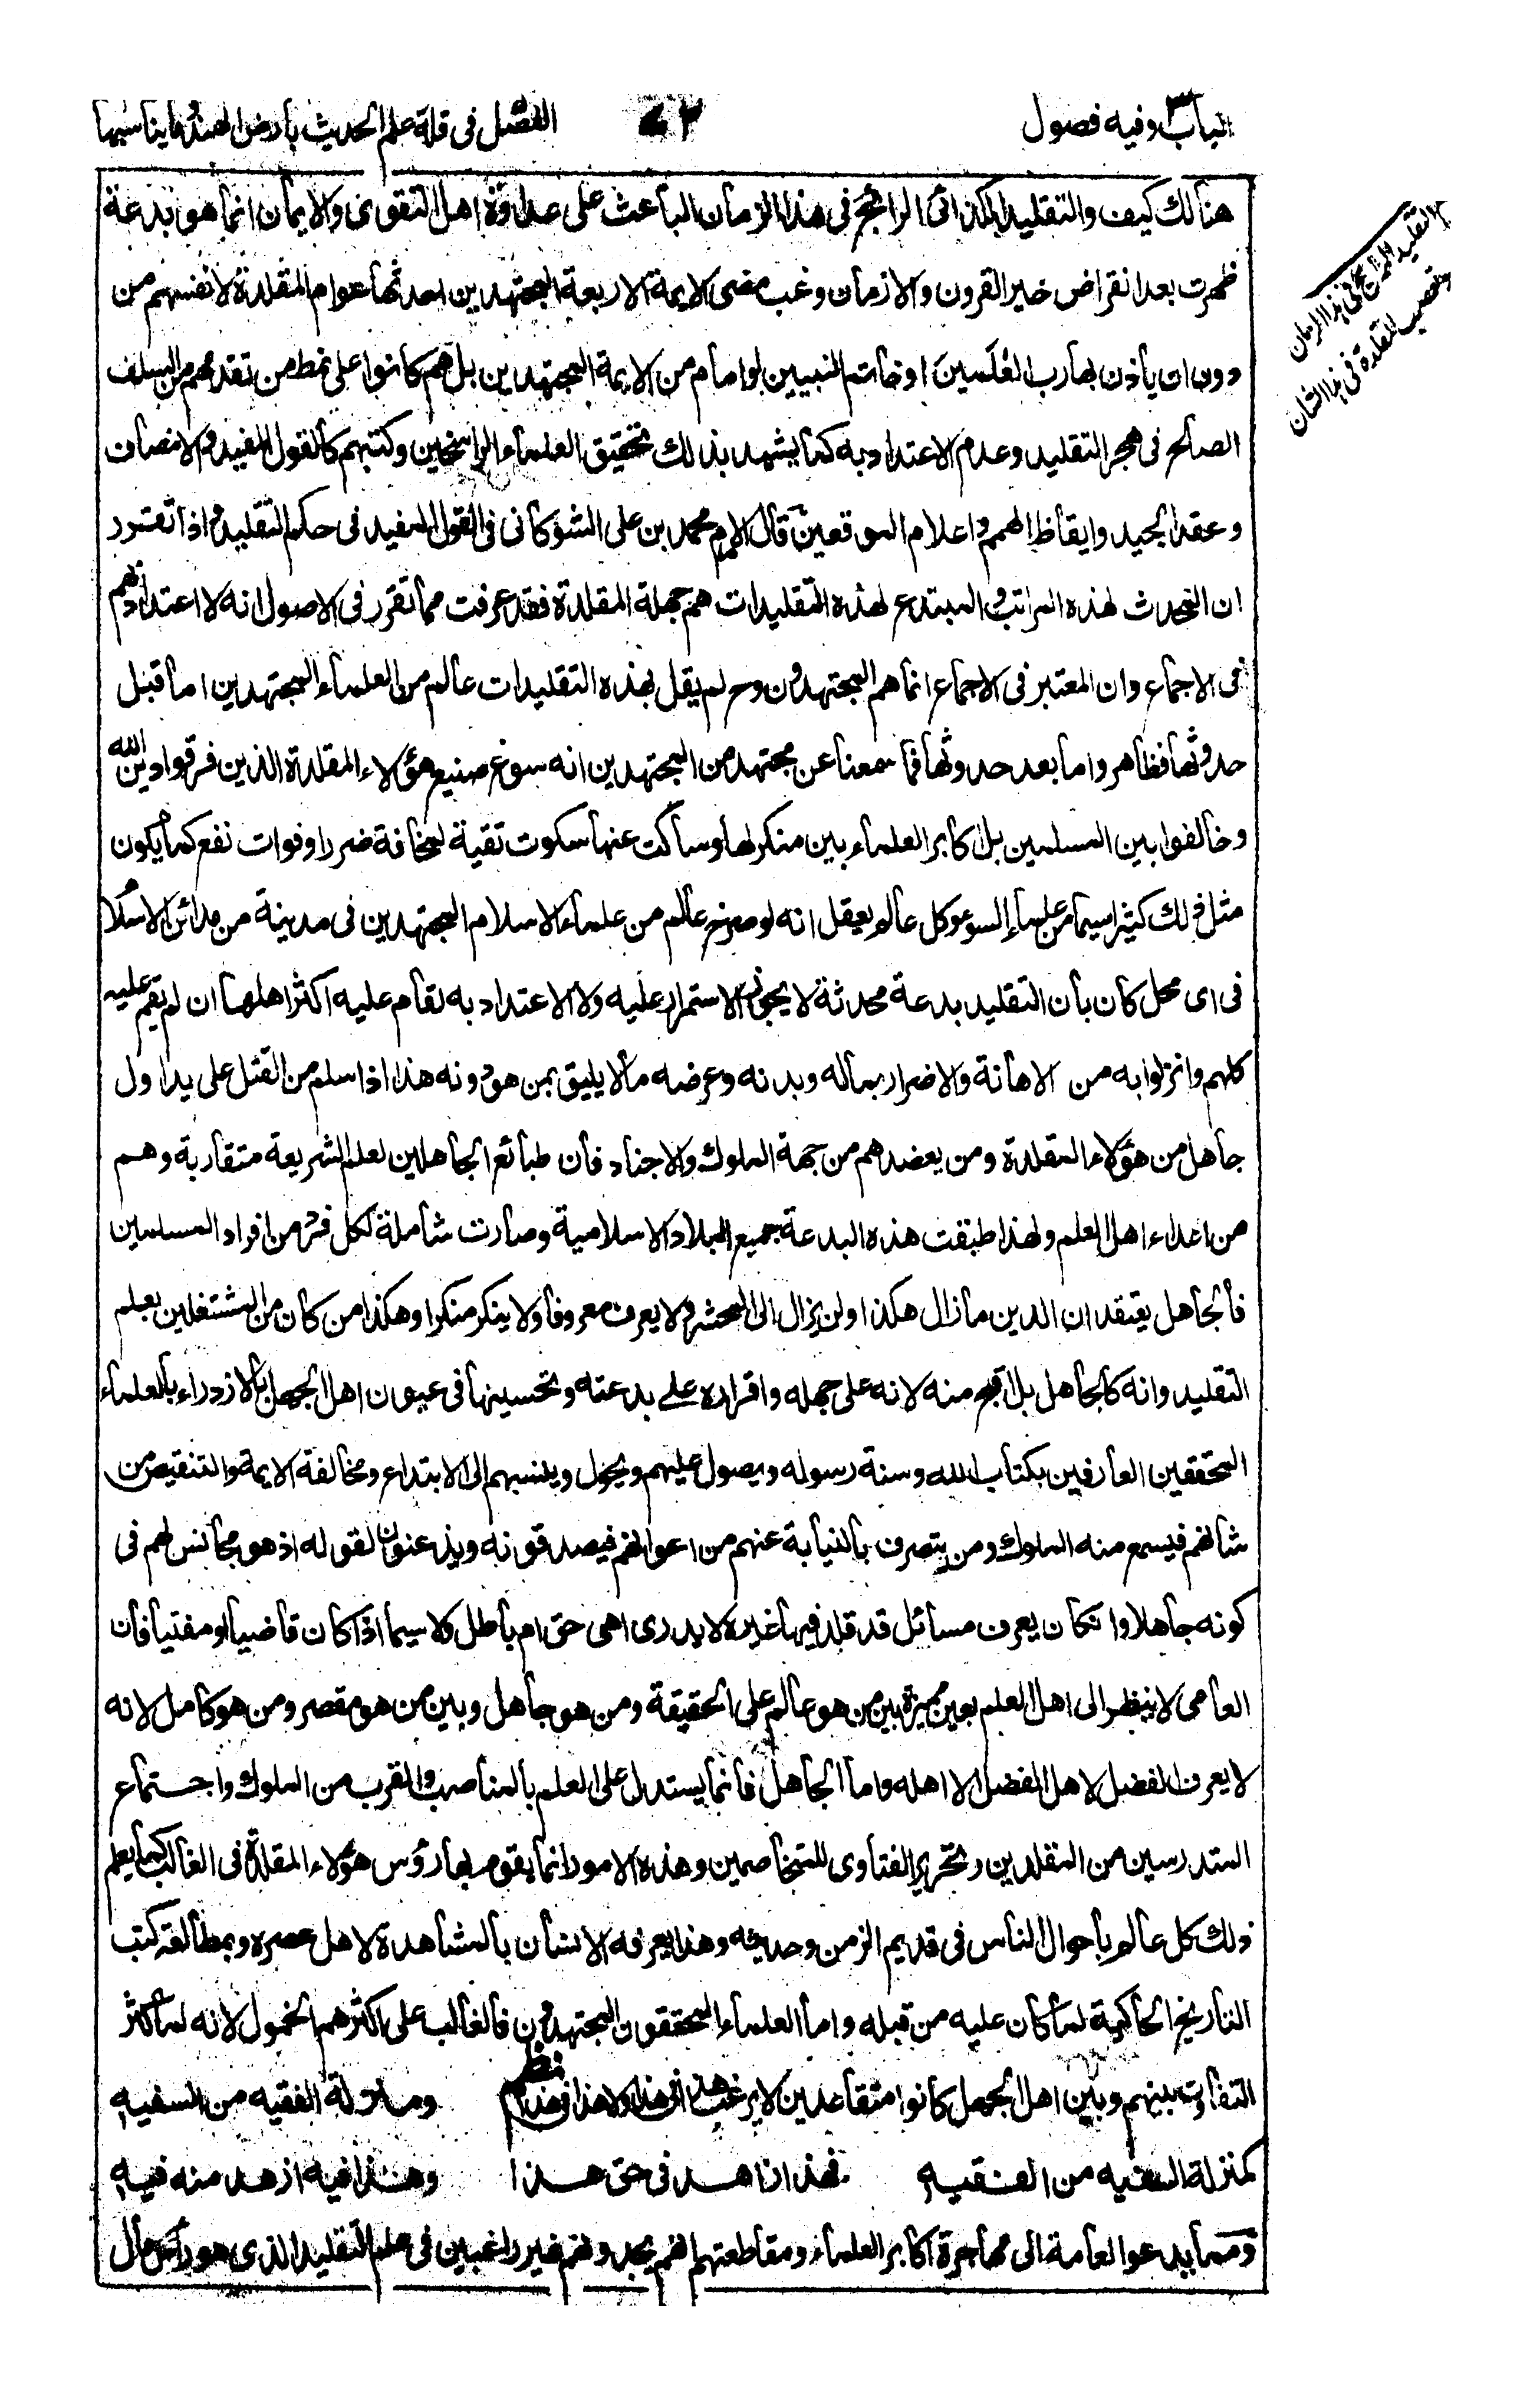 الباب٣ وفيه فصول
٧٢
الفصل فى قلة علم الحديث بأرض الهند وما يناسبها
هنالك كيف والتقليد الكذائى الرائج فى هذا الزمان الباعث على عداوة اهل التقوى والايمان انما هو بدعة
ظهرت بعد انقراض خير القرون والازمان وغب مضى الايمة الاربعة المجتهدين احدثها عوام المقلدة لانفسهم من
دون ان يأذن بها رب العٰلمين او خاتم النبيين او امام من الايمة المجتهدين بل هم كانوا على نمط من تقدمهم من السلف
الصالح فى هجر التقليد وعدم الاعتداد به كما يشهد بذلك تحقيق العلماء الراسخين وكتبهم كالقول المفيد والانصاف
وعقد الجيد وايقاظ الهمم واعلام الموقعين قال الامام محمد بن على الشوكانى فى القول المفيد فى حكم التقليد واذا تقرر
ان المحدث لهذه المراتب والمبتدع لهذه التقليدات هم جهلة المقلدة فقد عرفت مما تقرر فى الاصول انه لا اعتداد بهم
فى الاجماع وان المعتبر فى الاجماع انما هم المجتهدون وح لم يقل بهذه التقليدات عالم من العلماء المجتهدين اما قبل
حدوثها فظاهر واما بعد حدوثها فما سمعنا عن مجتهد من المجتهدين انه سوغ صنيع هؤلاء المقلدة الذين فرقوا دين الله
وخالفوا بين المسلمين بل اكابر العلماء بين منكر لها وساكت عنها سكوت تقية لمخافة ضرر او فوات نفع كما يكون
مثل ذلك كثيرا سيما من علماء السوء وكل عالم يعقل انه لو صرح عالم من علماء الاسلام المجتهدين فى مدينة من مدائن الاسلام
فى اى محل كان بأن التقليد بدعة محدثة لا يجوز الاستمرار عليه ولا الاعتداد به لقام عليه اكثر اهلها ان لم يقم عليه
كلهم وانزلوا به من الاهانة والاضرار بماله وبدنه وعرضه ما لا يليق بمن هو دونه هذا اذا سلم من القتل على يد اول
جاهل من هؤلاء المقلدة ومن يعضدهم من جهة الملوك والاجناد فان طبائع الجاهلين لعلم الشريعة متقاربة وهم
من اعداء اهل العلم ولهذا طبقت هذه البدعة جميع البلاد الاسلامية وصارت شاملة لكل فرد من افراد المسلمين
فالجاهل يعتقد ان الدين مازال هكذا ولن يزال الى المحشر ولا يعرف معروفا ولا ينكر منكرا وهكذا من كان من المشتغلين بعلم
التقليد وانه كالجاهل بل اقبح منه لانه على جهله واقراره على بدعته وتحسينها فى عيون اهل الجهل بالازدراء بالعلماء
المحققين العارفين بكتاب الله وسنة رسوله ويصول عليهم ويجول وينسبهم الى الابتداع ومخالفة الايمة والتنقيص من
شانهم فيسمع منه الملوك ومن يتصرف بالنيابة عنهم من اعوانهم فيصدقونه ويذعنون لقوله اذ هو مجانس لهم فى
كونه جاهلا وان كان يعرف مسائل قد قلد فيها غيره لا يدرى اهى حق ام باطل لاسيما اذا كان قاضيا او مفتيا فان
العامى لا ينظر الى اهل العلم بعين مميزة بين من هو عالم على الحقيقة ومن هو جاهل وبين من هو مقصر ومن هو كامل لانه
لا يعرف الفضل لاهل الفضل الا اهله واما الجاهل فانما يستدل على العلم بالمناصب والقرب من الملوك واجتماع
المتدرسين من المقلدين وتحرير الفتاوى للمتخاصمين وهذه الامور انما يقوم بها رؤس هؤلاء المقلدة فى الغالب كما يعلم
ذلك كل عالم بأحوال الناس فى قديم الزمن وحديثه وهذا يعرفه الانسان بالمشاهدة لاهل عصره وبمطالعة كتب
التاريخ الحاكية لما كان عليه من قبله واما العلماء المحققون المجتهدون فالغالب على اكثرهم الخمول لانه لما كثر
التفاوت بينهم وبين اهل الجهل كانوا متقاعدين لا يرغب هذا فى هذا ولا هذا فى هذا نظم ومنزلة الفقيه من السفيه
كمنزلة السفيه من الفقيه فهذا زاهد فى حق هذا وهذا فيه ازهد منه فيه
ومما يدعو العامة الى مهاجرة اكابر العلماء ومقاطعتهم انهم يجدونهم غير راغبين فى علم التقليد الذى هو رأس مال
التقليد الرائج فى هذا الزمان
وتعصب المقلدة فى هذا الشان